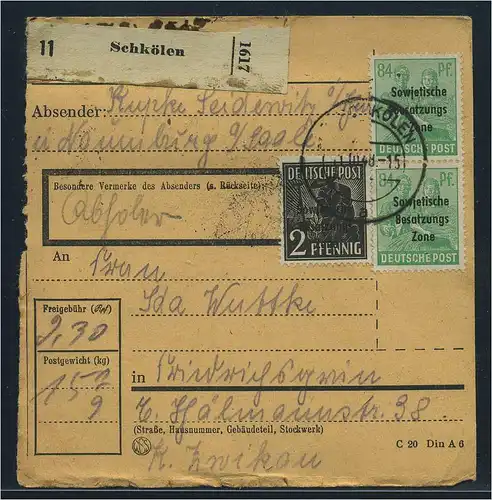 11
Schkölen
1617
Absender Kupke Seidewitz
Naumburg a/Saale
Besondere Vermerke des Absenders (s. Rückseite):
Abholer
DEUTSCHE POST
2 PFENNIG
84 Pf.
Sowjetische
Besatzungs
Zone
DEUTSCHE POST
84 Pf.
Sowjetische
Besatzungs
Zone
DEUTSCHE POST
An Frau
Ida Wuttke
Freigebühr
2,30
Postgewicht (kg)
15
in Friedrichsgrün
E. Thälmannstr. 38.
(Straße, Hausnummer, Gebäudeteil, Stockwerk)
C 20 Din A 6
K. Zwickau